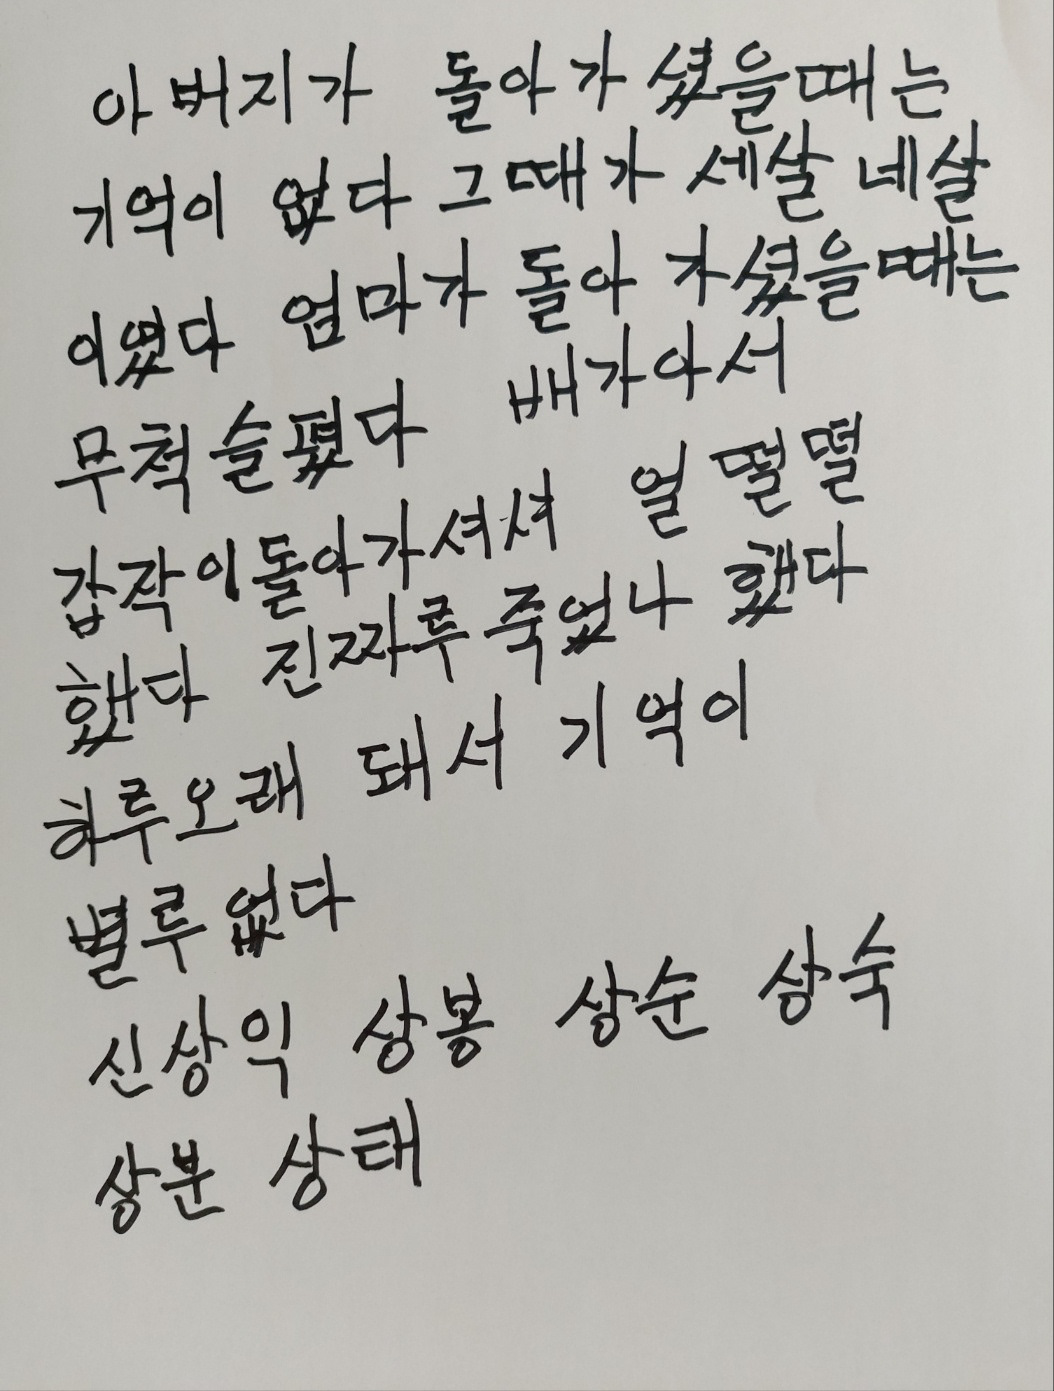 아버지가 돌아가셨을때는
기억이 없다 그때가 세살 네살
이였다 엄마가 돌아가셨을때는
무척 슬펐다 배가아서
갑작이돌아가셔셔 얼떨떨
했다 진짜루 죽었나 했다
하루오래 돼서 기억이
별루없다
신상익 상봉 상순 상숙
상분 상태